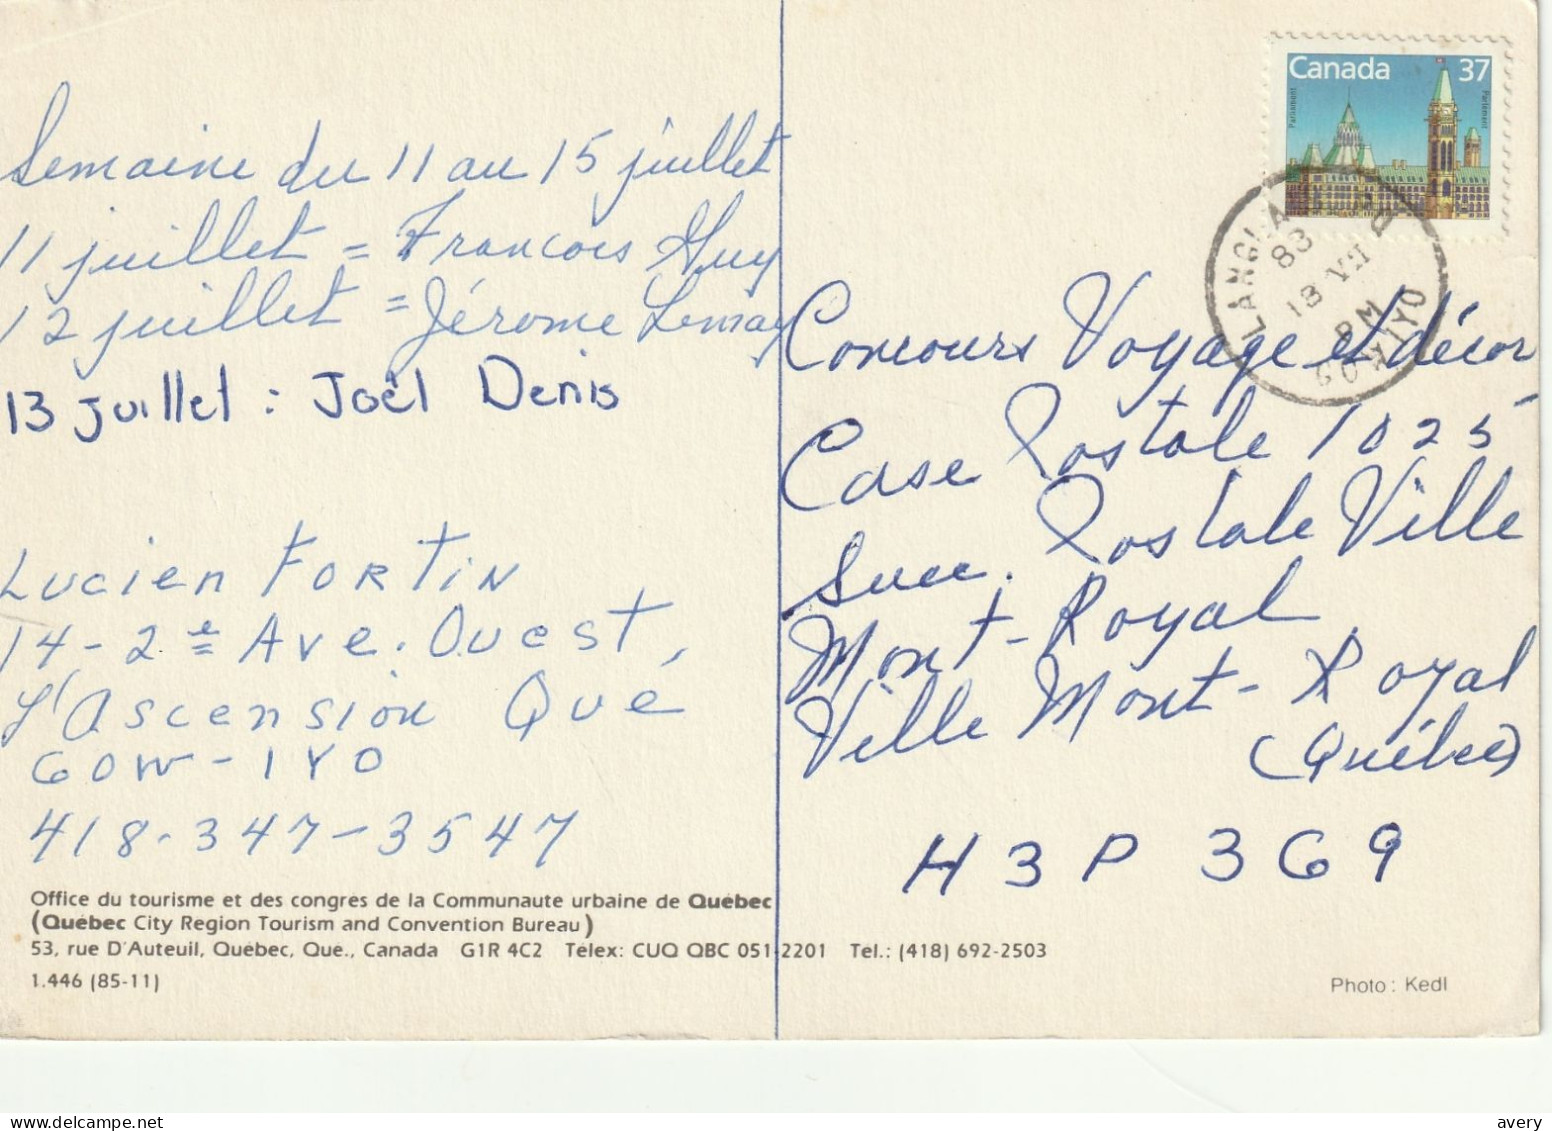 Semaine du 11 au 15 juillet
11 juillet = Francois Huy
12 juillet = Jérome Lemay
13 juillet : Joël Denis
Lucien Fortin
14-2e Ave. Ouest,
L'Ascension Qué
G0W-1Y0
418-347-3547
Office du tourisme et des congrès de la Communaute urbaine de Québec
(Québec City Region Tourism and Convention Bureau)
53, rue D'Auteuil, Québec, Que., Canada G1R 4C2 Télex: CUQ QBC 051-2201 Tel.: (418) 692-2503
1.446 (85-11)
Canada 37
Parliament
Parlement
83
13 VII
PM
G0W1Y0
Concours Voyage et décor
Case Postale 1025
Succ. Postale Ville
Mont-Royal
Ville Mont-Royal
(Québec)
H3P 3G9
Photo : Kedl
avery